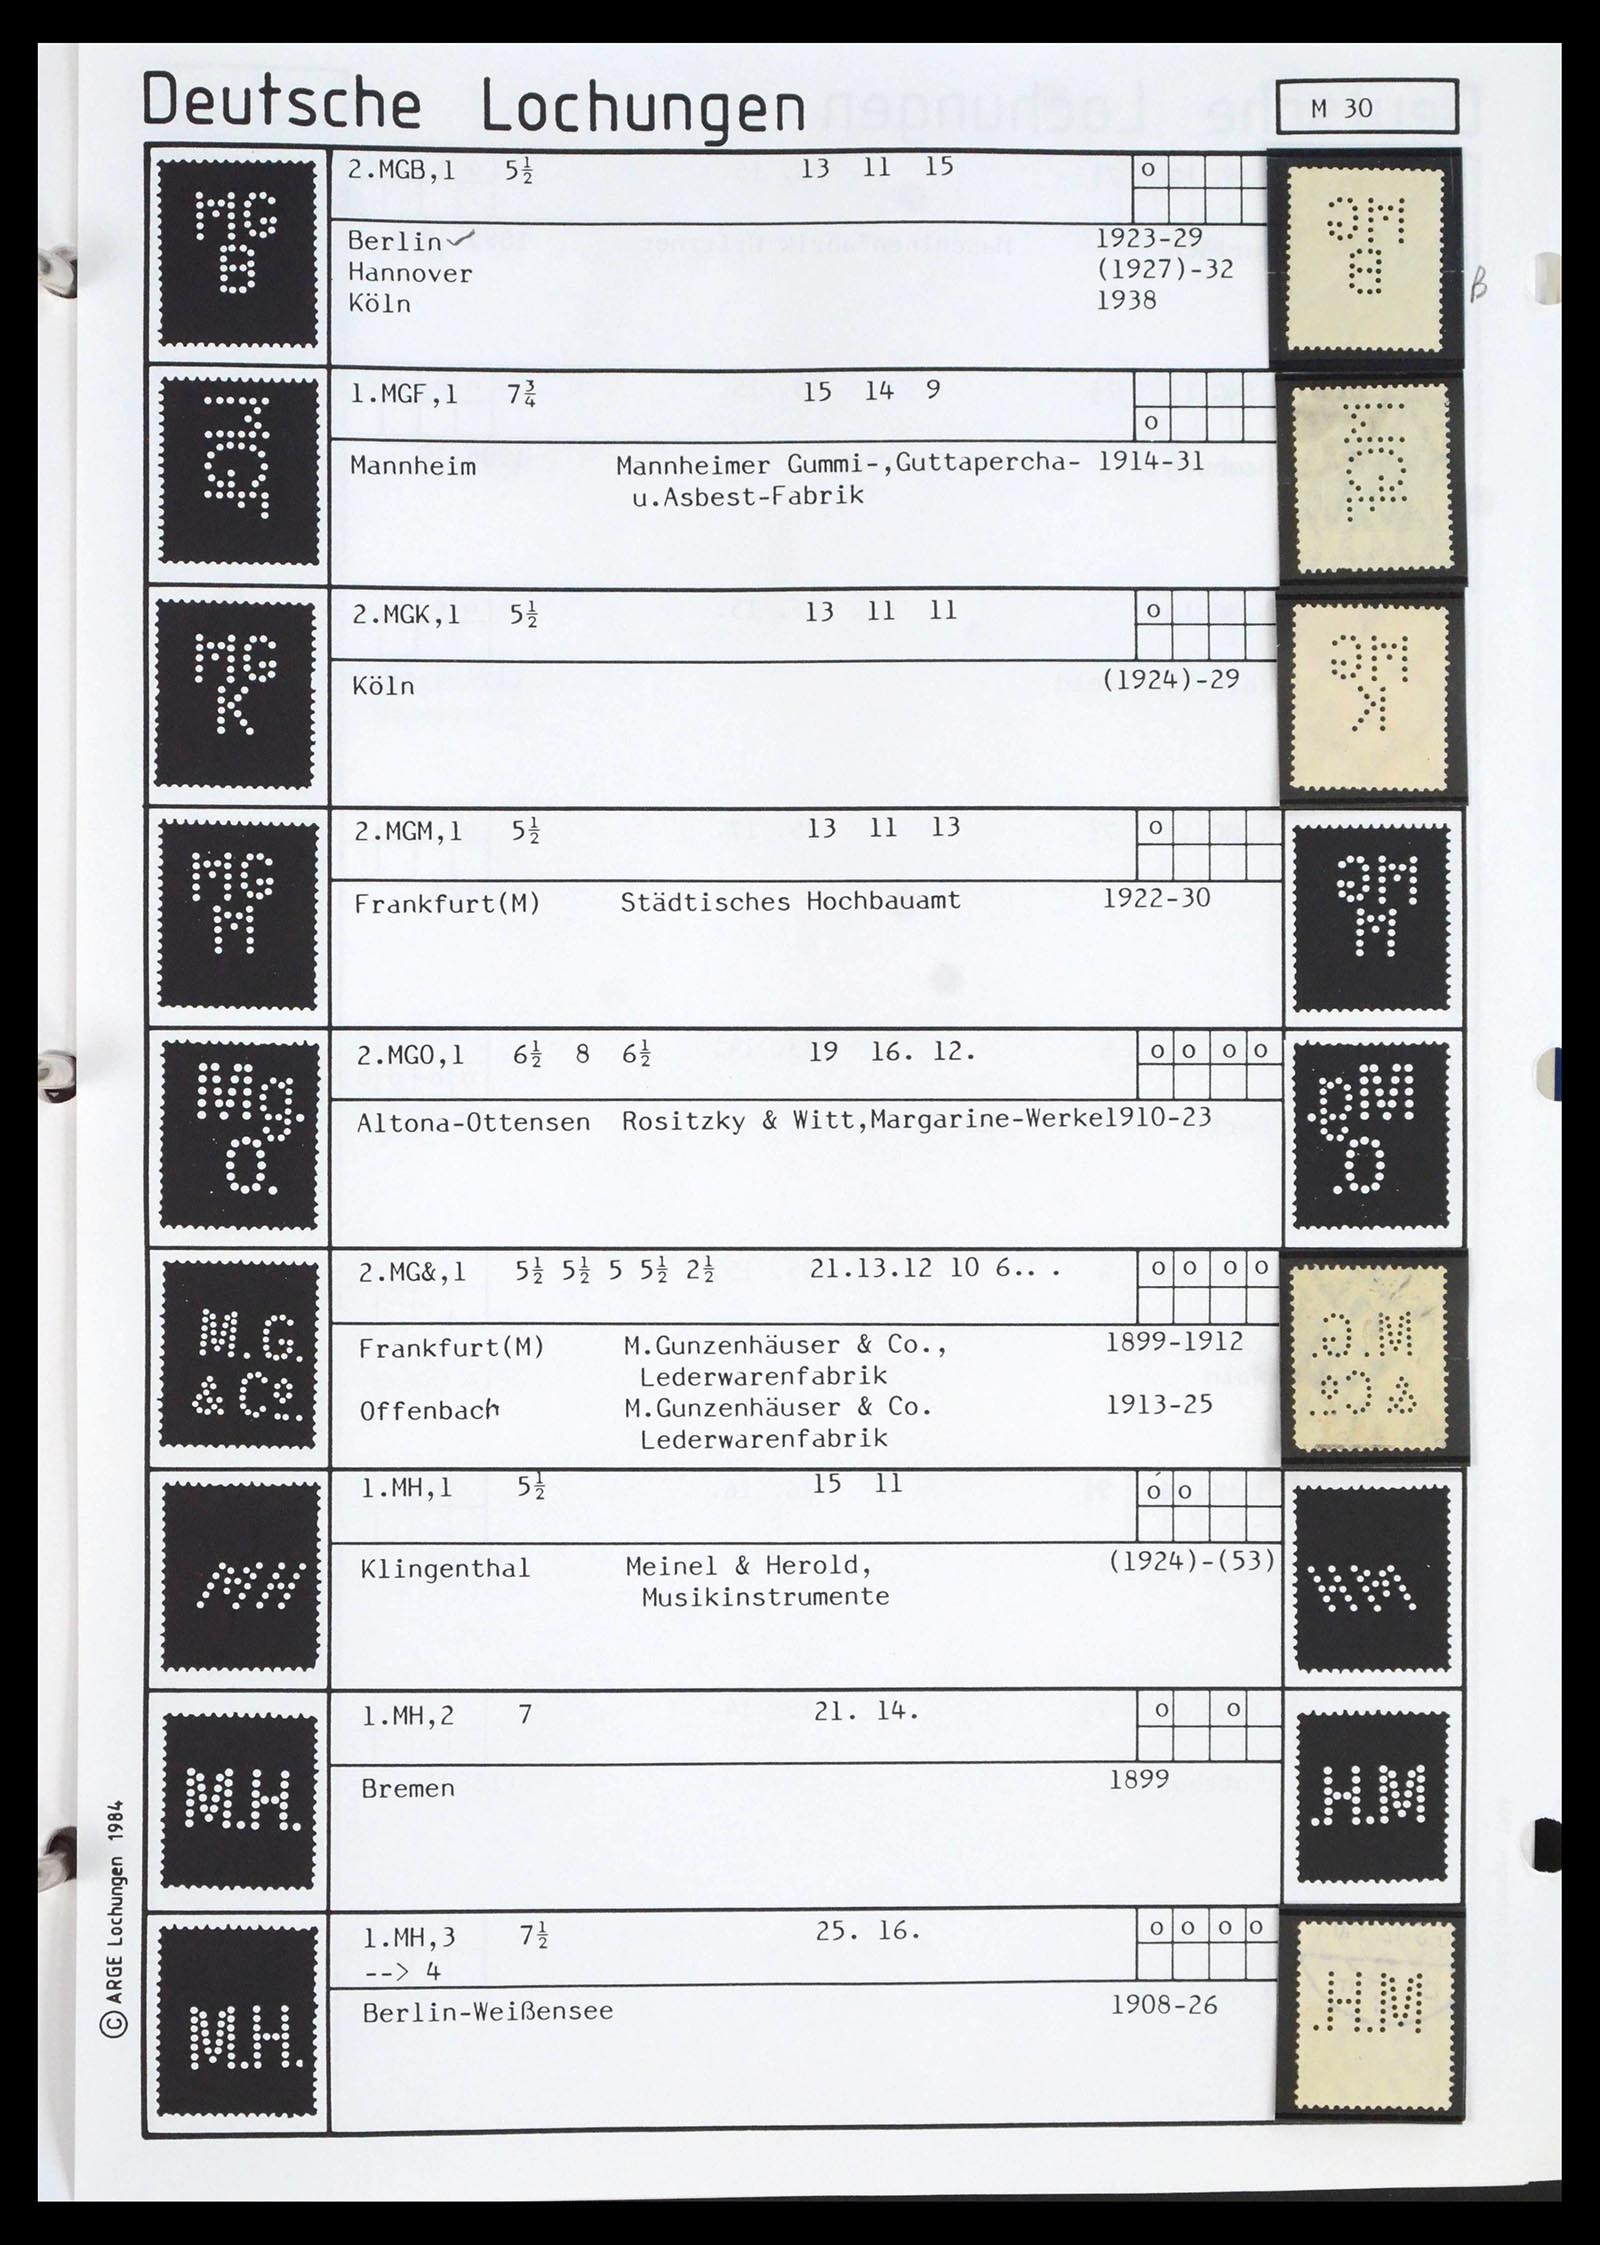 Deutsche Lochungen
M 30
MG
B
2.MGB,1 5½ 13 11 15 o
Berlin 1923-29
Hannover (1927)-32
Köln 1938
B
MGF
1.MGF,1 7¾ 15 14 9
o
Mannheim Mannheimer Gummi-,Guttapercha- 1914-31
u.Asbest-Fabrik
MG
K
2.MGK,1 5½ 13 11 11 o
Köln (1924)-29
MG
M
2.MGM,1 5½ 13 11 13 o
Frankfurt(M) Städtisches Hochbauamt 1922-30
Mg.
O.
2.MGO,1 6½ 8 6½ 19 16. 12. o o o o
Altona-Ottensen Rositzky & Witt,Margarine-Werke1910-23
M.G.
& Co.
2.MG&,1 5½ 5½ 5 5½ 2½ 21.13.12 10 6.. . o o o o
Frankfurt(M) M.Gunzenhäuser & Co., 1899-1912
Lederwarenfabrik
Offenbach M.Gunzenhäuser & Co. 1913-25
Lederwarenfabrik
MH
1.MH,1 5½ 15 11 o o
Klingenthal Meinel & Herold, (1924)-(53)
Musikinstrumente
M.H.
1.MH,2 7 21. 14. o o
Bremen 1899
M.H.
1.MH,3 7½ 25. 16. o o o o
--> 4
Berlin-Weißensee 1908-26
© ARGE Lochungen 1984